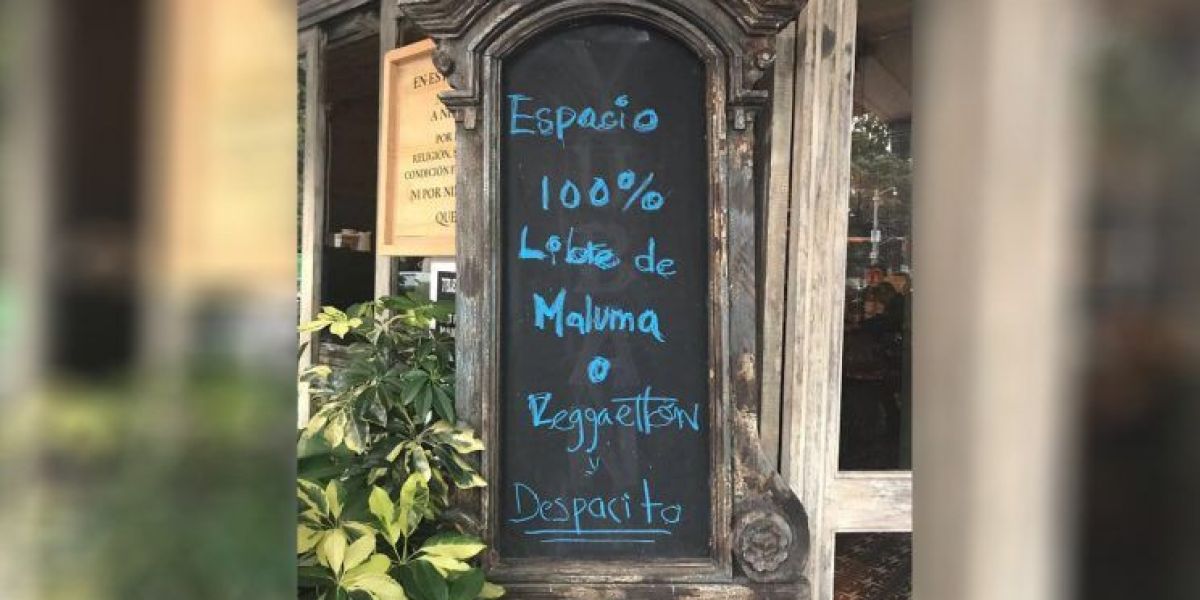 EN ES
A NI
POR
RELIGIÓN, S
CONDICIÓN F
NI POR NI
QUE
Espacio
100%
Libre de
Maluma
o
Reggaettón
y
Despacito